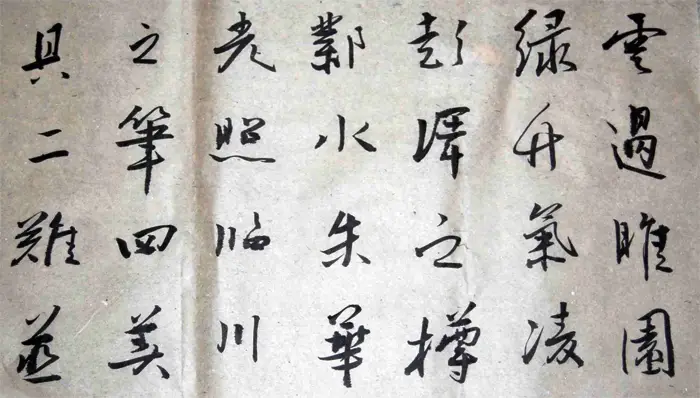 雲遏睢園
緑竹氣凌
彭澤之樽
鄴水朱華
光照临川
之筆四美
具二難並